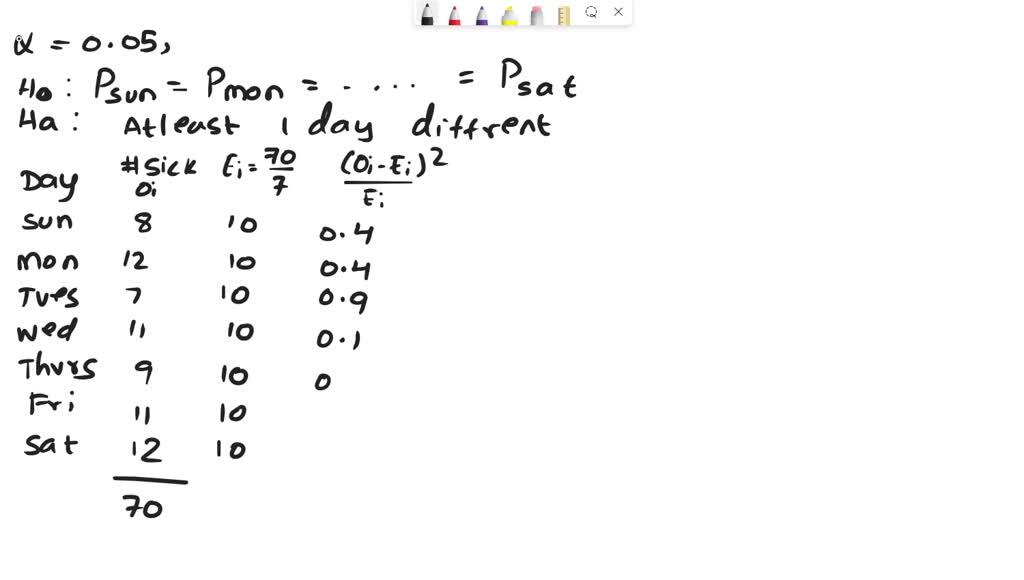 α = 0.05,
Ho : Psun = Pmon = . ... = Psat
Ha : Atleast 1 day diffrent
Day #Sick Oi Ei = 70/7 (Oi - Ei)2/Ei
Sun 8 10 0.4
Mon 12 10 0.4
Tues 7 10 0.9
Wed 11 10 0.1
Thurs 9 10 0
Fri 11 10
Sat 12 10
70